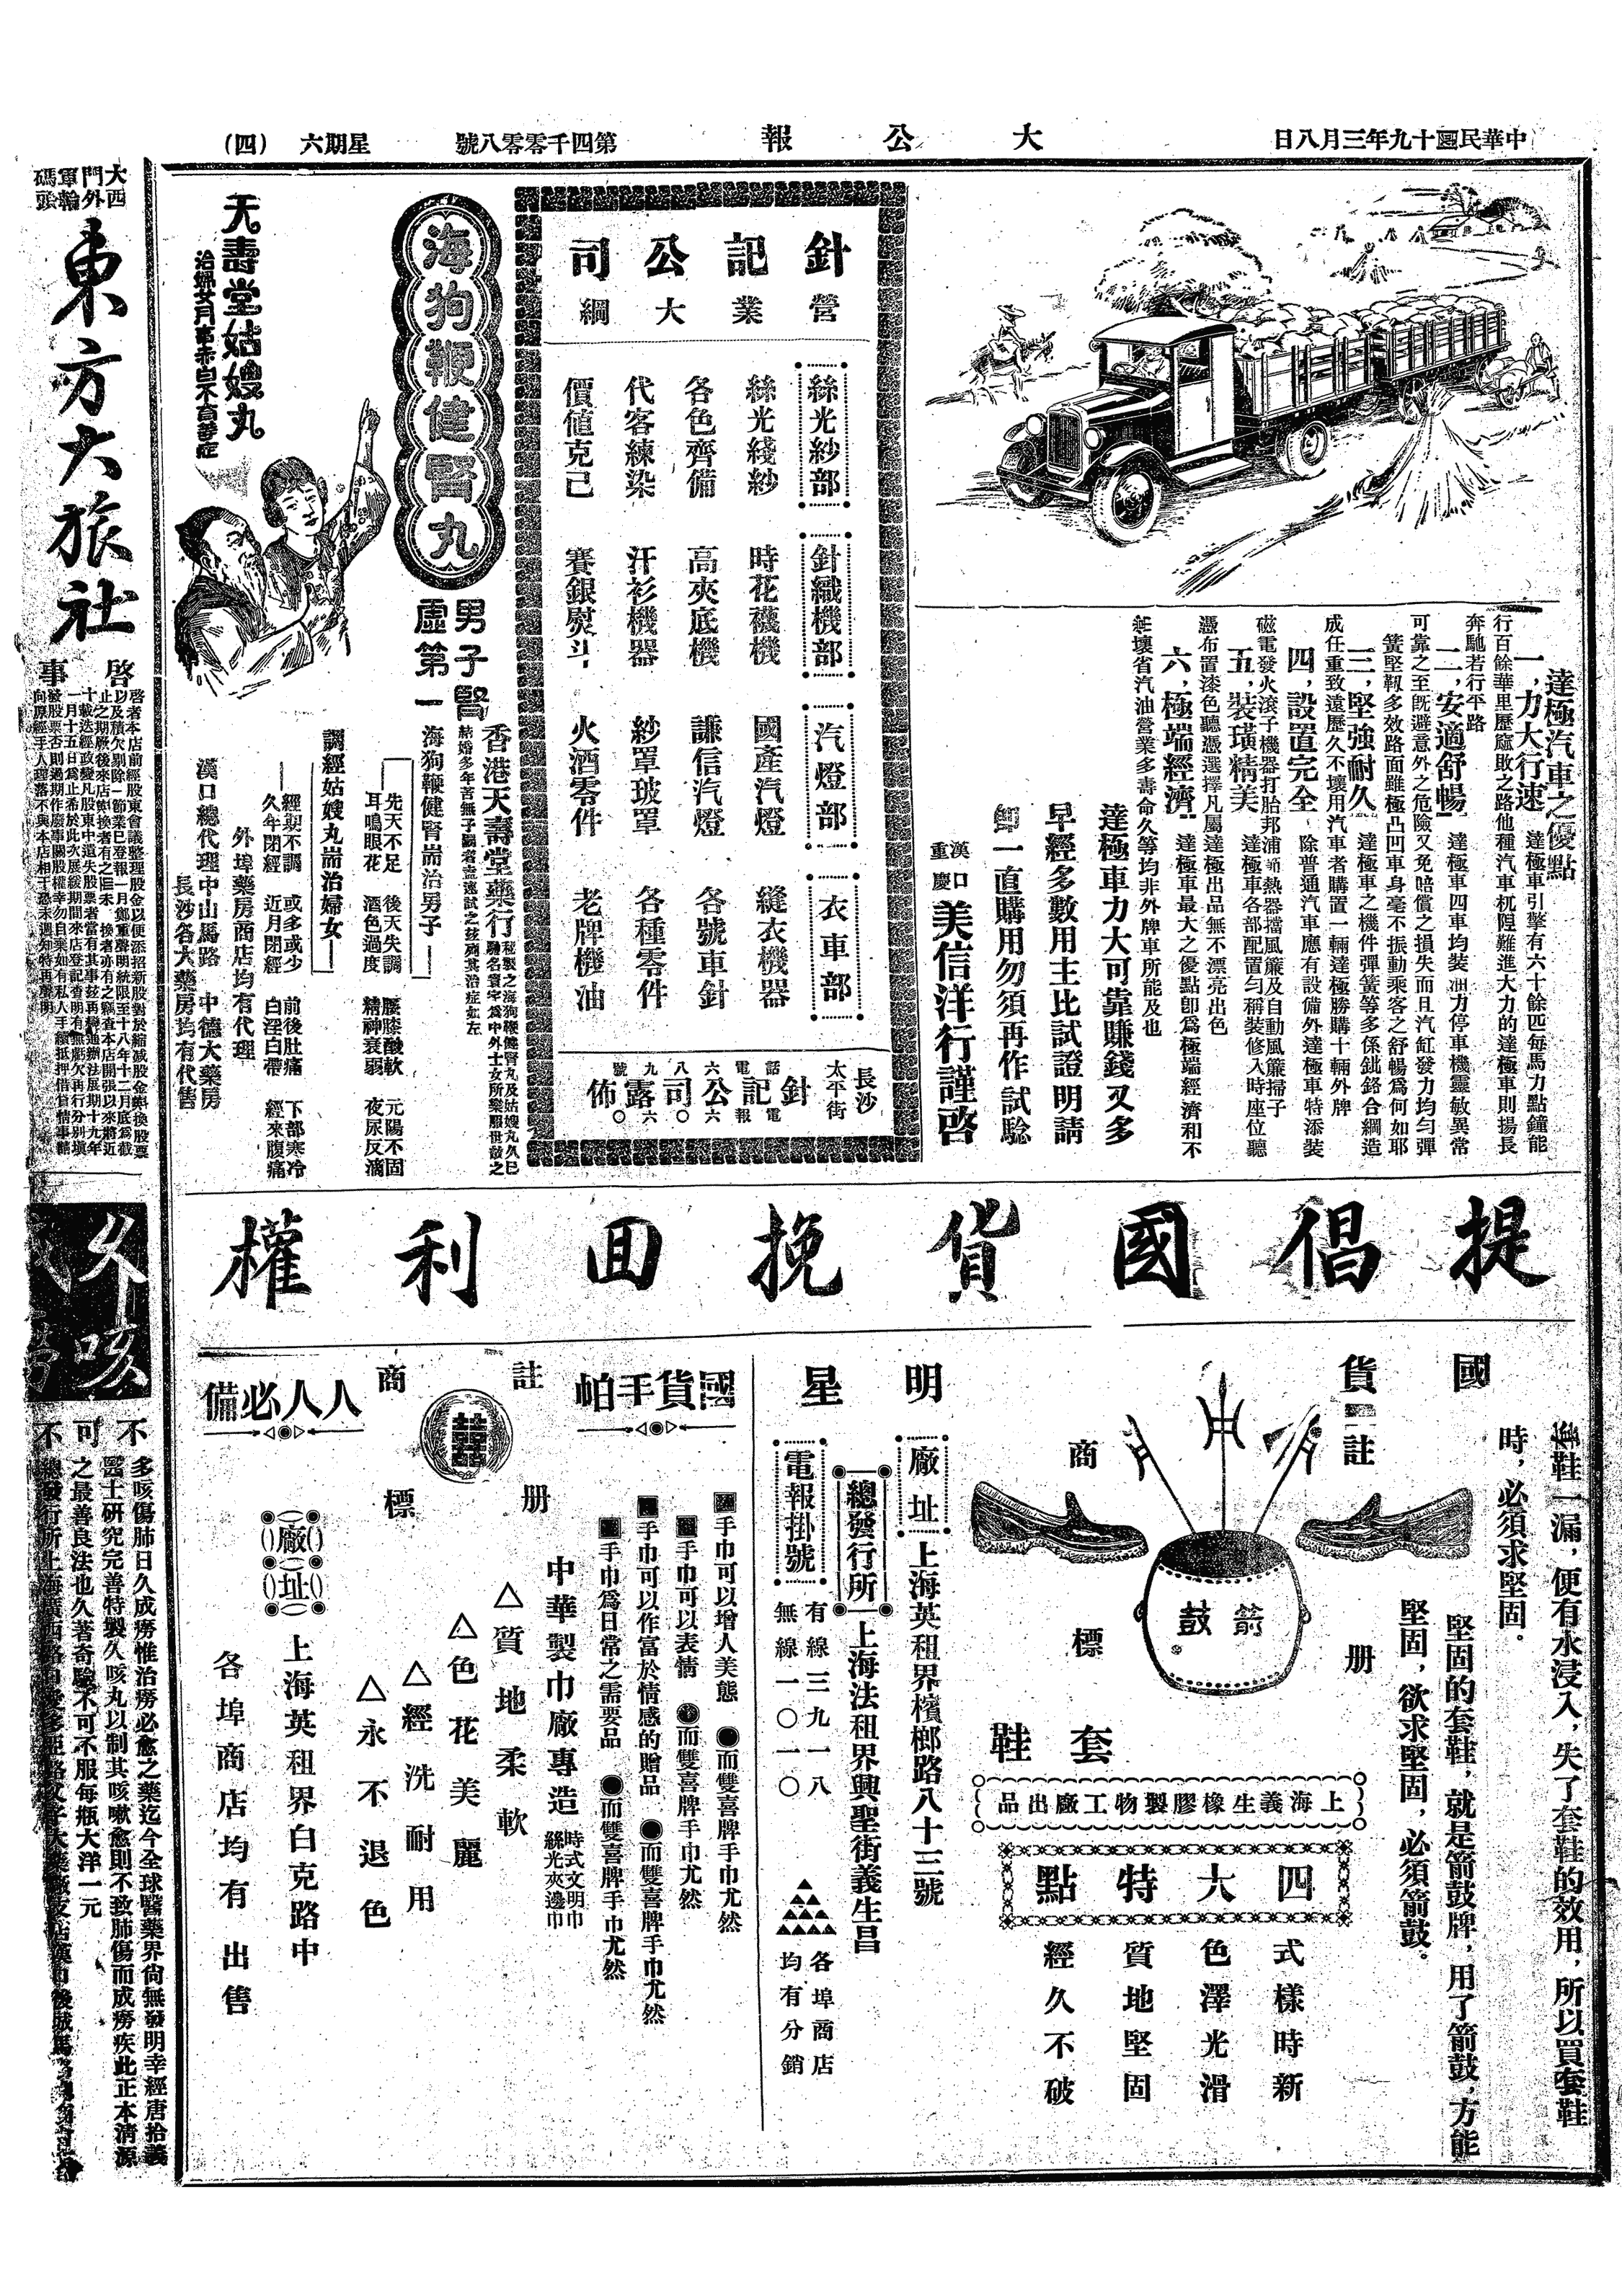 中華民國十九年三月八日
大公報
第四千零零八號
星期六
(四)
達極汽車之優點
一，力大行速　達極車引擎有六十餘匹每馬力點鐘能
行百餘華里歷窳敗之路他種汽車杌隉難進大力的達極車則揚長
奔馳若行平路
二，安適舒暢　達極車四車均装油力停車機靈敏異常
可靠之至旣避意外之危險又免賠償之損失而且汽缸發力均勻彈
簧堅韌多效路面雖極凸凹車身毫不振動乘客之舒暢爲何如耶
三，堅強耐久　達極車之機件彈簧等多係銚鉻合鋼造
成任重致遠歷久不壞用汽車者購置一輛達極勝購十輛外牌
四，設置完全　除普通汽車應有設備外達極車特添装
磁電發火滾子機器打胎邦浦節熱器擋風簾及自動風簾掃子
五，装璜精美　達極車各部配置勻稱装修入時座位聽
憑布置漆色聽憑選擇凡屬達極出品無不漂亮出色
六，極端經濟　達極車最大之優點卽爲極端經濟和不
走壞省汽油營業多壽命久等均非外牌車所能及也
達極車力大可靠賺錢又多
早經多數用主比試證明請
卽一直購用勿須再作試騐
漢口
重慶
美信洋行謹啓
針記公司
營業大綱
絲光紗部
絲光綫紗
各色齊備
代客練染
價値克己
針織機部
時花襪機
高夾底機
汗衫機器
賽銀熨斗
汽燈部
國產汽燈
謙信汽燈
紗罩玻罩
火酒零件
衣車部
縫衣機器
各號車針
各種零件
老牌機油
長沙
太平街
針記公司露佈
電話六八九號
電報六六〇〇
海狗鞭健腎丸
男子腎
虛第一
天壽堂姑嫂丸
治婦女月事赤白不育等症
香港天壽堂藥行
秘製之海狗鞭健腎丸及姑嫂丸久已
馳名寰宇爲中外士女所樂服世豔之
結婚多年苦無子嗣者盍速試之玆列其治症如左
海狗鞭健腎耑治男子
先天不足　後天失調　腰膝酸軟　元陽不固
耳鳴眼花　酒色過度　精神衰弱　夜尿反滴
調經姑嫂丸耑治婦女
經期不調　或多或少　前後肚痛　下部寒冷
久年閉經　近月閉經　白淫白帶　經來腹痛
外埠藥房商店均有代理
漢口總代理中山馬路　中德大藥房
長沙各大藥房均有代售
大西門外軍輪碼頭
東方大旅社
啓事
啓者本店前經股東會議整理股金以便添招新股對於縮減股金與換股票
以及積欠剔除一節業已登報一月鄭重聲明統限至十八年十二月底爲截
提倡國貨挽回利權
國貨
註册商標
箭鼓
套鞋
上海義生橡膠製物工廠出品
四大特點
式樣時新
色澤光滑
質地堅固
經久不破
套鞋一漏，便有水浸入，失了套鞋的效用，所以買套鞋
時，必須求堅固。
堅固的套鞋，就是箭鼓牌，用了箭鼓，方能
堅固，欲求堅固，必須箭鼓。
明星
廠址　上海英租界檳榔路八十三號
總發行所　上海法租界興聖街義生昌
電報掛號　有線三九一八
無線一〇一〇
各埠商店
均有分銷
國貨手帕
註册商標
人人必備
手巾可以增人美態　而雙喜牌手巾尤然
手巾可以表情　而雙喜牌手巾尤然
手巾可以作富於情感的贈品　而雙喜牌手巾尤然
手巾爲日常之需要品　而雙喜牌手巾尤然
中華製巾廠專造　時式文明巾
絲光夾邊巾
△質地柔軟
△色花美麗
△經洗耐用
△永不退色
廠址　上海英租界白克路中
各埠商店均有出售
久咳
不可不
多咳傷肺日久成癆惟治癆必愈之藥迄今全球醫藥界尙無發明幸經唐拾義
醫士研究完善特製久咳丸以制其咳嗽愈則不致肺傷而成癆疾此正本清源
之最善良法也久著奇驗不可不服每瓶大洋一元